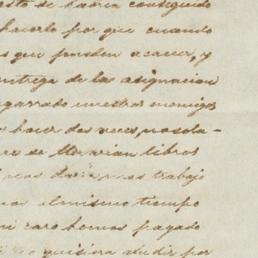 esto se habria conseguido
hacerlo por que cuando
s que pueden acaecer, y
entrega de las asignacion
agarrado nuestros enemigos
hacer dos veces, no sola-
se libros
mas trabajo
al mismo tiempo
ni caro hemos pagado
no quisiera aludir por